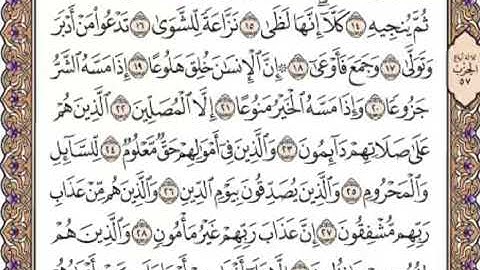 ثُمَّ يُنجِيهِ ﴿١٤﴾ كَلَّآ ۖ إِنَّهَا لَظَىٰ ﴿١٥﴾ نَزَّاعَةً لِّلشَّوَىٰ ﴿١٦﴾ تَدْعُوا۟ مَنْ أَدْبَرَ
وَتَوَلَّىٰ ﴿١٧﴾ وَجَمَعَ فَأَوْعَىٰٓ ﴿١٨﴾ ۞ إِنَّ ٱلْإِنسَٰنَ خُلِقَ هَلُوعًا ﴿١٩﴾ إِذَا مَسَّهُ ٱلشَّرُّ
جَزُوعًا ﴿٢٠﴾ وَإِذَا مَسَّهُ ٱلْخَيْرُ مَنُوعًا ﴿٢١﴾ إِلَّا ٱلْمُصَلِّينَ ﴿٢٢﴾ ٱلَّذِينَ هُمْ
عَلَىٰ صَلَاتِهِمْ دَآئِمُونَ ﴿٢٣﴾ وَٱلَّذِينَ فِىٓ أَمْوَٰلِهِمْ حَقٌّ مَّعْلُومٌ ﴿٢٤﴾ لِّلسَّآئِلِ
وَٱلْمَحْرُومِ ﴿٢٥﴾ وَٱلَّذِينَ يُصَدِّقُونَ بِيَوْمِ ٱلدِّينِ ﴿٢٦﴾ وَٱلَّذِينَ هُم مِّنْ عَذَابِ
رَبِّهِم مُّشْفِقُونَ ﴿٢٧﴾ إِنَّ عَذَابَ رَبِّهِمْ غَيْرُ مَأْمُونٍ ﴿٢٨﴾ وَٱلَّذِينَ هُمْ
الحزب
٥٧